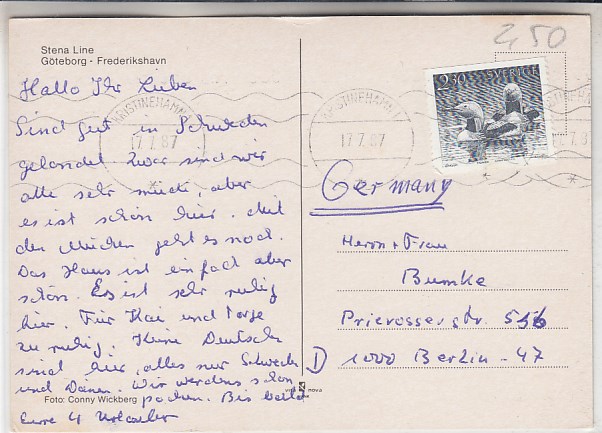 Stena Line
Göteborg - Frederikshavn
Hallo Ihr Lieben
Sind gut in Schweden
gelandet. Zwar sind wir
alle sehr müde, aber
es ist schön hier. Mit
den Mücken geht es noch.
Das Haus ist einfach aber
schön. Es ist sehr ruhig
hier. Für Kai und Torge
zu ruhig. Keine Deutsch
sind hier, alles nur Schweden
und Dänen. Wir werdens schon
packen. Bis bald
Eure 4 Urlauber
Foto: Conny Wickberg
2,50
KRISTINEHAMN
17.7.87
KRISTINEHAMN
17.7.87
2.30 SVERIGE
Germany
Herrn + Frau
Bumke
Prierosserstr. 55b
D 1000 Berlin - 47
nova